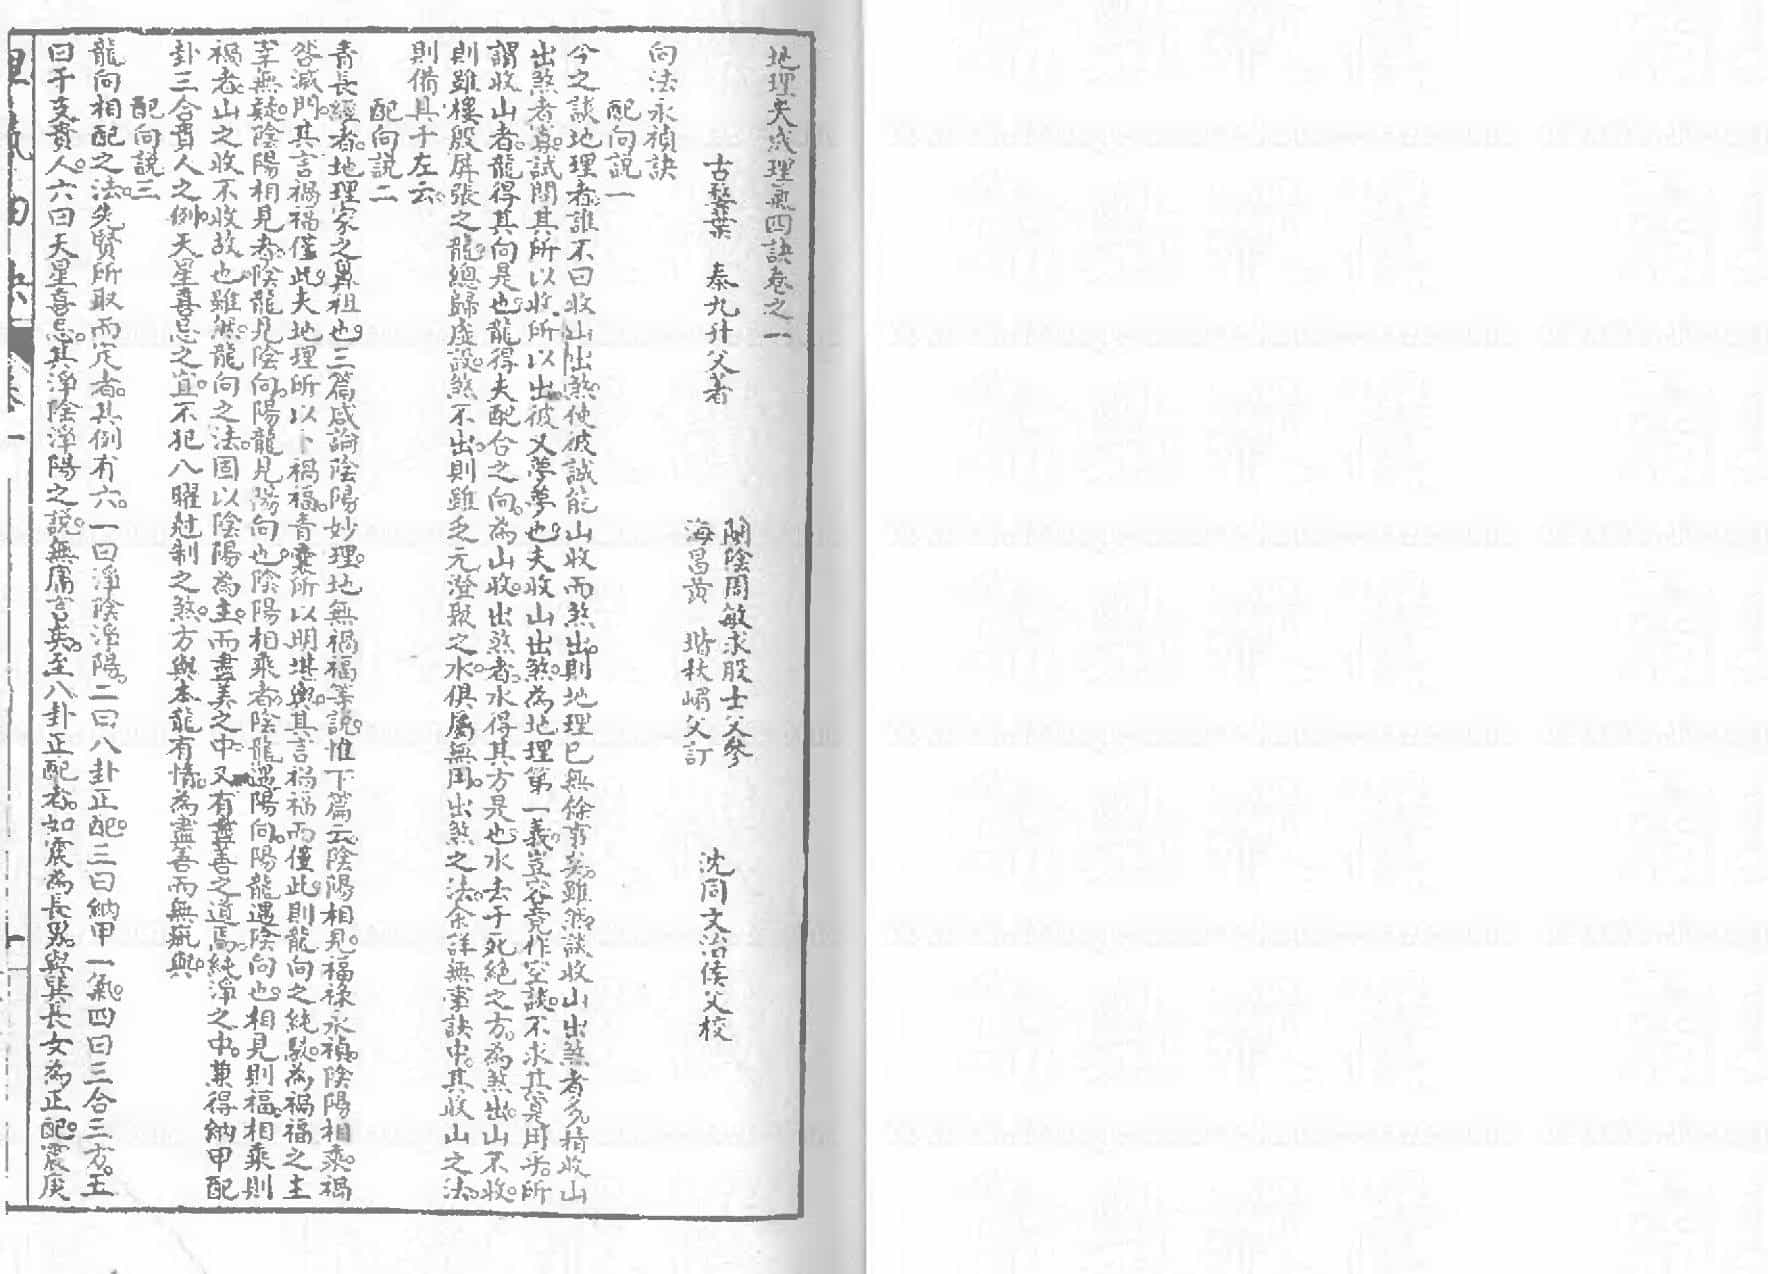 地理天𢧵理氣四訣卷之一
古婺葉 泰九升父著
閩陰周敏求股士父參
海昌黃 堦秋嵋父訂
沈同文治倓父校
向法永禎訣
配向說一
今之談地理者誰不曰收山出煞使彼誠能山收而煞出則地理已無餘事矣雖然談收山出煞者多精收山
出煞者寡試問其所以收所以出彼又夢夢也夫收山出煞為地理第一義豈容竟作空談不求其真用乎所
謂收山者龍得其向是也龍得夫配合之向為山收出煞者水得其方是也水去于死絕之方為煞出山不收
則雖樓殿屏張之龍總歸虛設煞不出則雖乏元澄聚之水俱屬無用出煞之法余詳無事訣中其收山之法
則備具于左云
配向說二
青長經者地理家之鼻祖也三篇咸論陰陽妙理地無禍福等說惟下篇云陰陽相見福祿永禎陰陽相乘禍
咎滅門其言禍福僅此夫地理所以卜禍福青囊所以明堪輿其言禍福而僅此則龍向之純駁為禍福之主
宰無疑陰陽相見者陰龍見陰向陽龍見陽向也陰陽相乘者陰龍遇陽向陽龍遇陰向也相見則福相乘則
禍者山之收不收故也雖然龍向之法固以陰陽為主而盡美之中又有盡善之道焉純淨之中兼得納甲配
卦三合貴人之例天星喜忌之宜不犯八曜尅制之煞方與本龍有情為盡善而無疵與
配向說三
龍向相配之法先賢所取而定者其例有六一曰淨陰淨陽二曰八卦正配三曰納甲一氣四曰三合三方五
曰干支貴人六曰天星喜忌其淨陰淨陽之說無庸言矣至八卦正配者如震為長男與巽長女為正配震庚
卷一